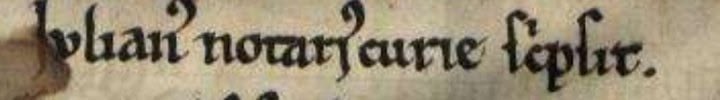 Iulianꝰ notariꝰ curie sc̍psit.